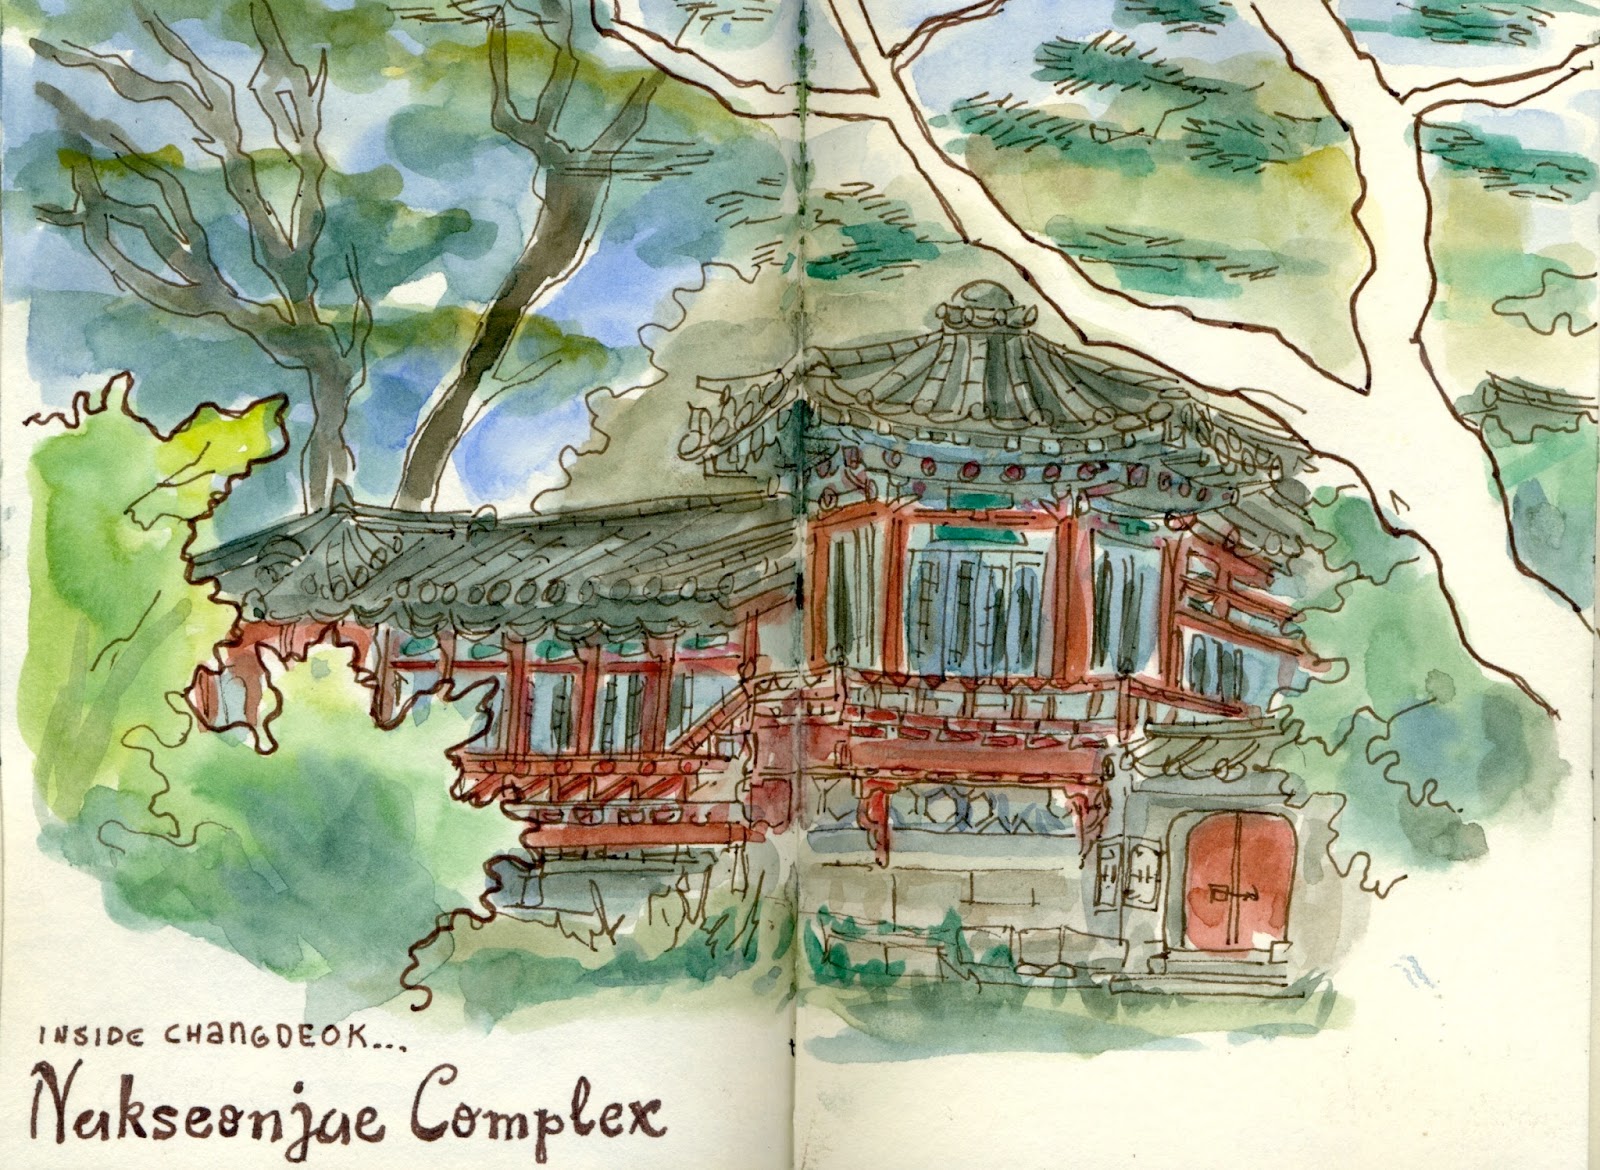 INSIDE CHANGDEOK...
Nakseonjae Complex